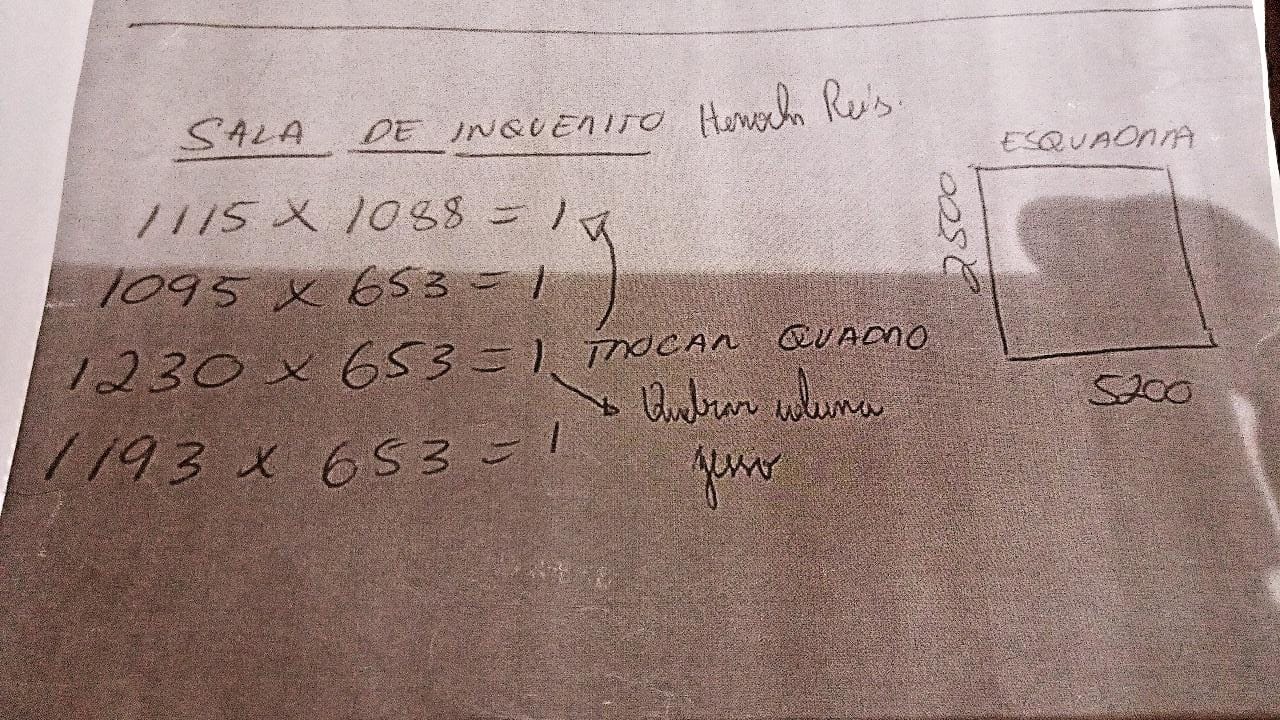 SALA DE INQUERITO Henoch Reis.
1115 x 1088 = 1
1095 x 653 = 1
1230 x 653 = 1 TROCAR QUADRO
Quebrar coluna
gesso
1193 x 653 = 1
ESQUADRIA
2500
5200